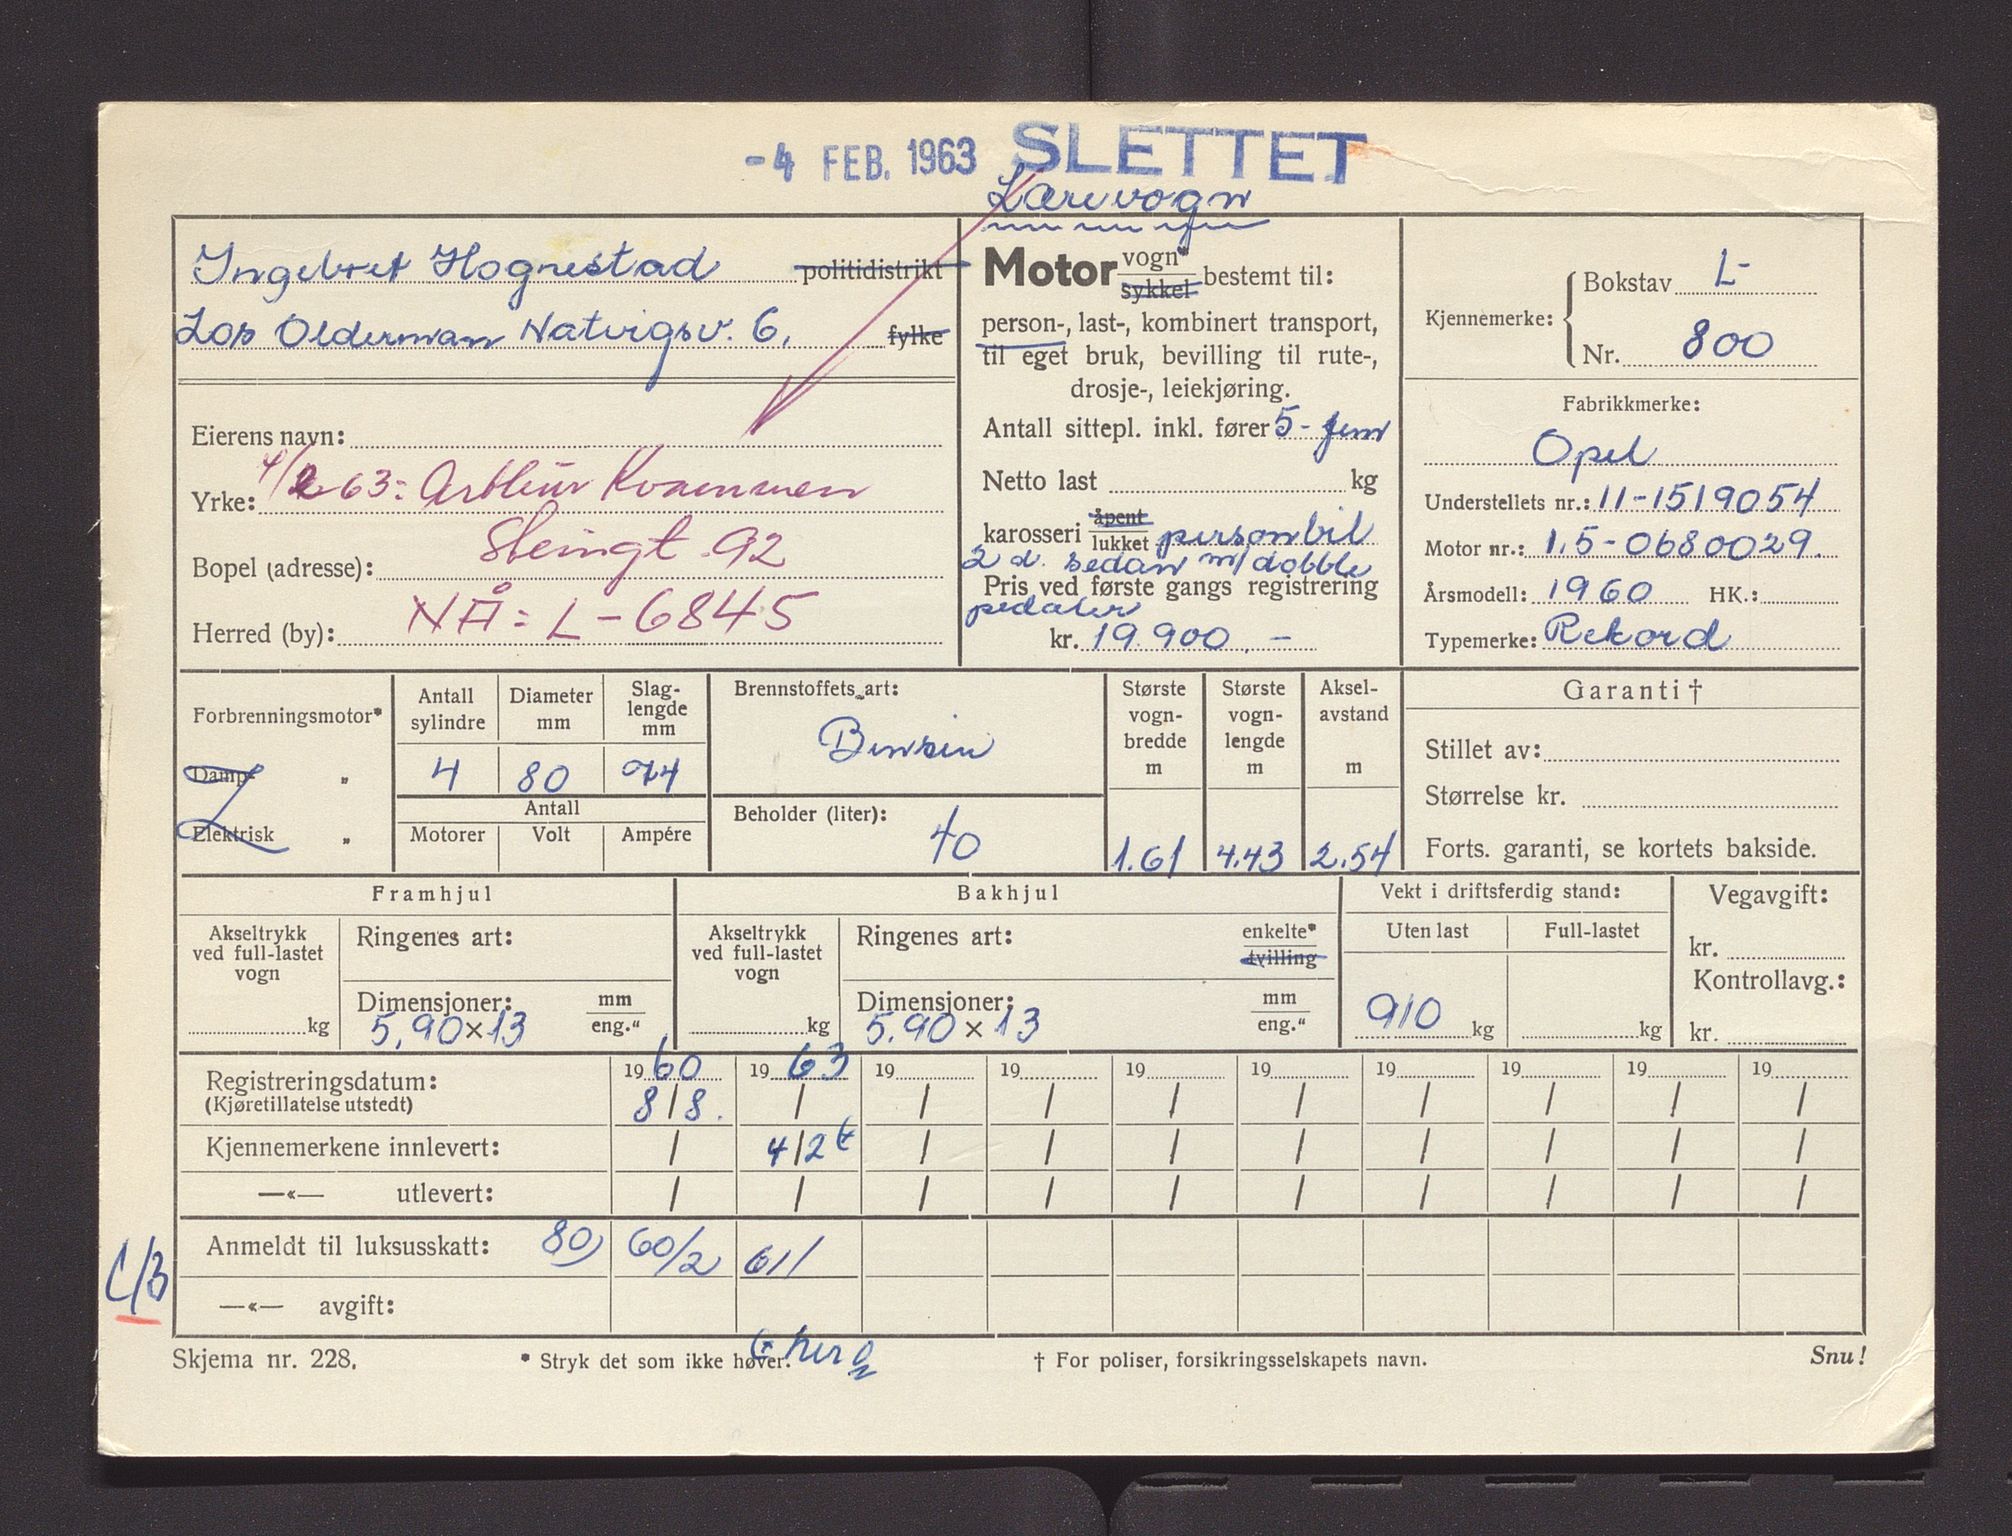 - 4 FEB. 1963 SLETTET
Lærevogn
Ingebret Hognestad politidistrikt
Los Olderman Natvigsv. 6. fylke
Eierens navn:
4/2 63: Arthur Kvammen
Yrke:
Steingt. 92
Bopel (adresse):
NÅ: L-6845
Herred (by):
Motor vogn* sykkel bestemt til:
person-, last-, kombinert transport,
til eget bruk, bevilling til rute-,
drosje-, leiekjøring.
Antall sittepl. inkl. fører 5 - fem
Netto last kg
karosseri åpent lukket personbil
2 d. sedan m/ dobble
Pris ved første gangs registrering
pedaler
kr. 19.900.-
Kjennemerke: Bokstav L-
Nr. 800
Fabrikkmerke:
Opel
Understellets nr.: 11-1519054
Motor nr.: 1.5-0680029.
Årsmodell: 1960 HK.:
Typemerke: Rekord
Forbrenningsmotor*
Damp- „
Elektrisk „
Antall sylindre Diameter mm Slag-lengde mm
4 80 74
Antall
Motorer Volt Ampére
Brennstoffets art:
Bensin
Beholder (liter):
40
Største vogn-bredde m Største vogn-lengde m Aksel-avstand m
1.61 4.43 2.54
Garanti †
Stillet av:
Størrelse kr.
Forts. garanti, se kortets bakside.
Framhjul
Akseltrykk ved full-lastet vogn
kg
Ringenes art:
Dimensjoner: mm eng."
5,90×13
Bakhjul
Akseltrykk ved full-lastet vogn
kg
Ringenes art: enkelte* tvilling
Dimensjoner: mm eng."
5.90×13
Vekt i driftsferdig stand:
Uten last Full-lastet
910 kg kg
Vegavgift:
kr.
Kontrollavg.:
kr.
1960 1963 19 19 19 19 19 19 19 19
Registreringsdatum: 8/8. / / / / / / / / /
(Kjøretillatelse utstedt)
Kjennemerkene innlevert: / 4/2 / / / / / / / /
—«— utlevert: / / / / / / / / / /
Anmeldt til luksusskatt: 80) 60/2 61/
—«— avgift:
Skjema nr. 228. * Stryk det som ikke høver. † For poliser, forsikringsselskapets navn. Snu!